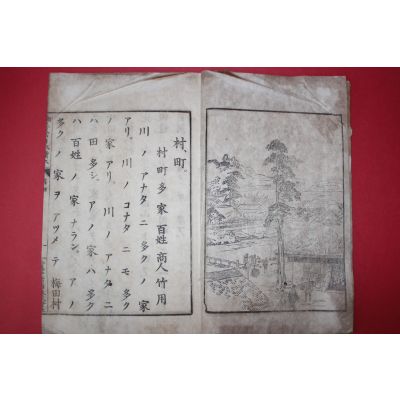 村、町。
村 町 多 家 百姓 商人 竹 用
川 ノ アナタ ニ 多ク ノ 家
アリ。 川 ノ コナタ ニ モ 多ク
ノ 家 アリ。 川 ノ アナタ ニ
ハ 田 多シ。 アノ 家 ハ 多ク
ハ 百姓 ノ 家 ナラン。 アノ
多ク ノ 家 ヲ アツメ テ 梅田村